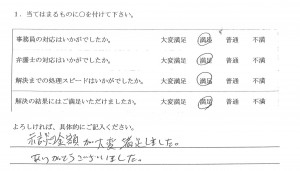 1．当てはまるものに○を付けて下さい。
事務員の対応はいかがでしたか。 大変満足 満足 普通 不満
弁護士の対応はいかがでしたか。 大変満足 満足 普通 不満
解決までの処理スピードはいかがでしたか。 大変満足 満足 普通 不満
解決の結果にはご満足いただけましたか。 大変満足 満足 普通 不満
よろしければ、具体的にご記入ください。
示談金額が大変満足しました。
ありがとうございました。